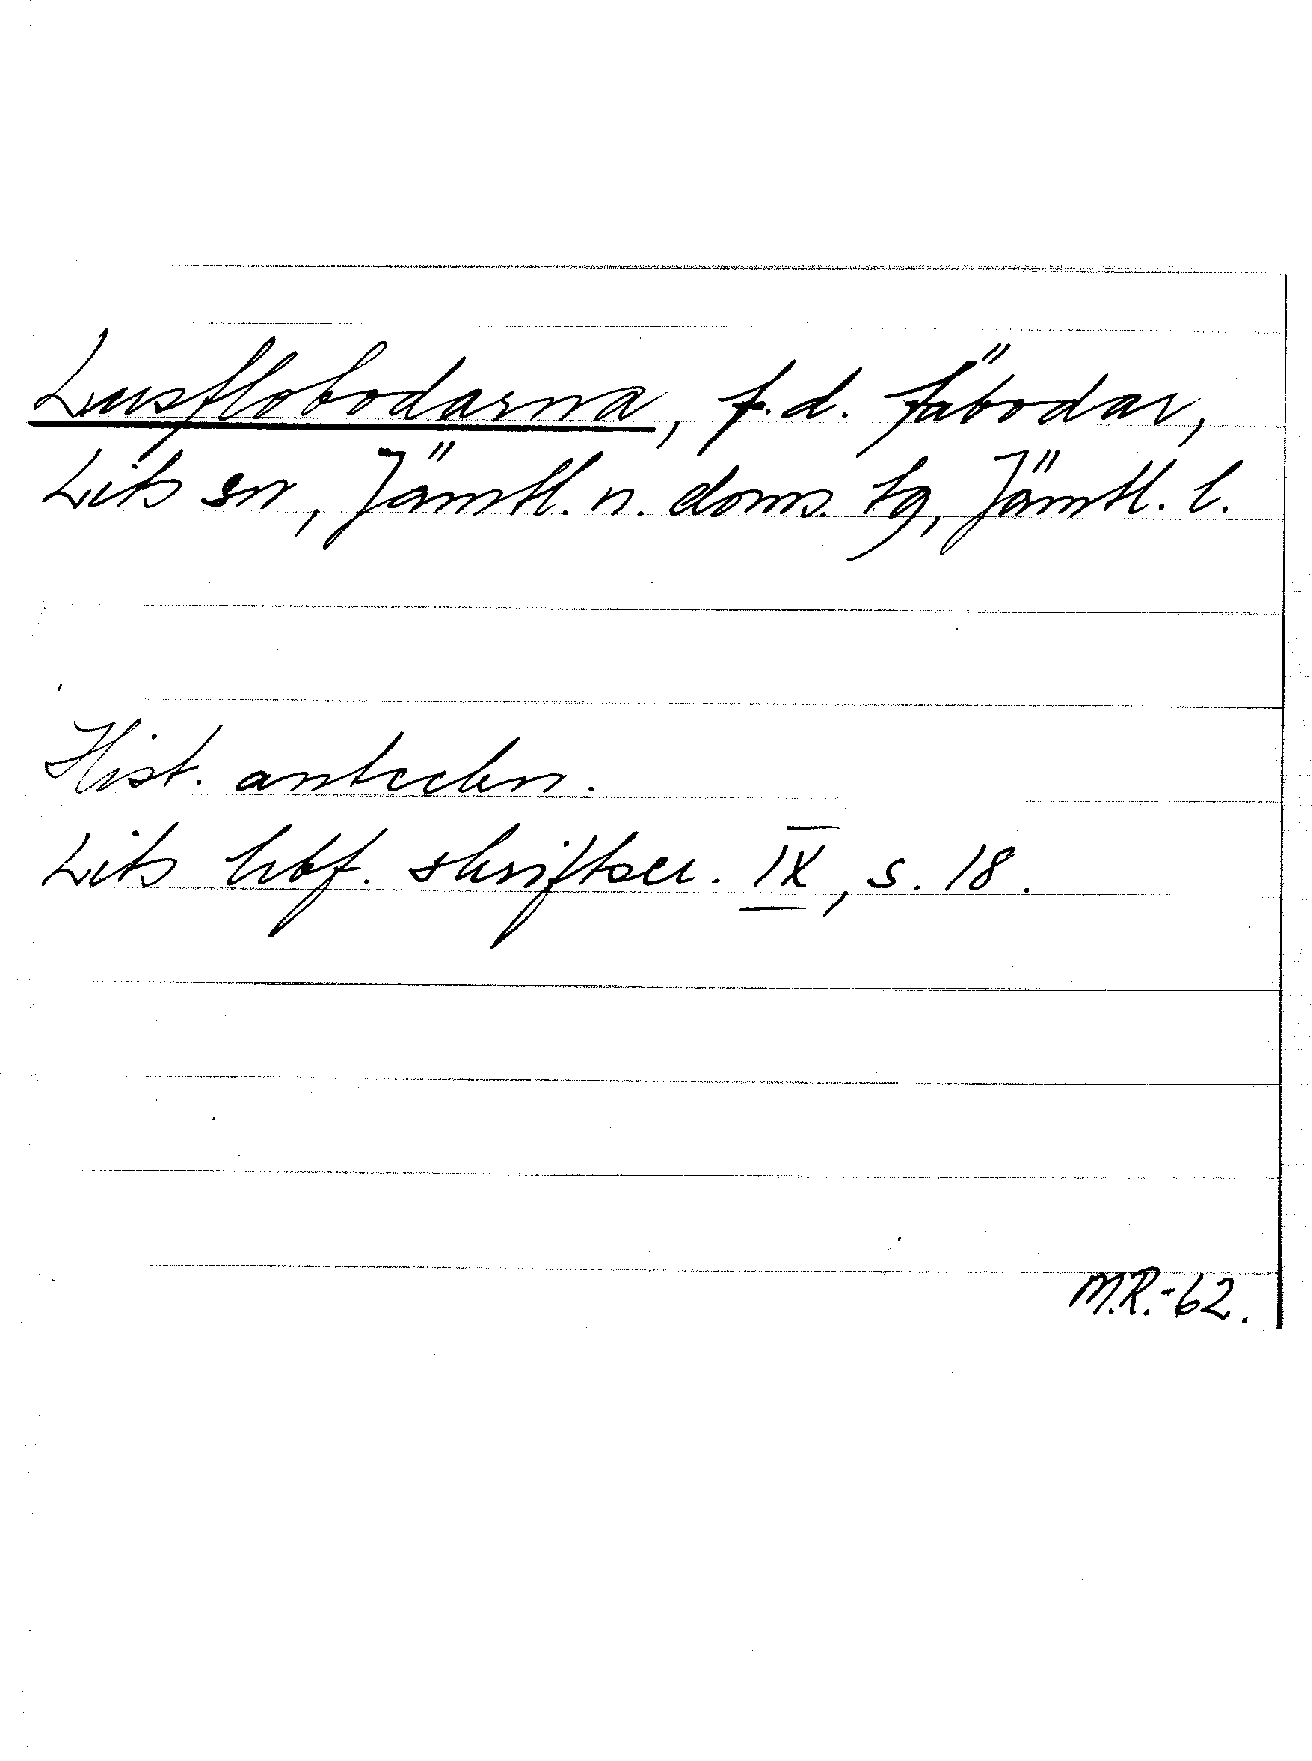 Lusflobodarna, f.d. fäbodar,
Lits sn, Jämtl. n. doms. tg, Jämtl. l.
Hist. anteckn.
Lits hbf. skriftser. IX, s. 18.
M.R.-62.